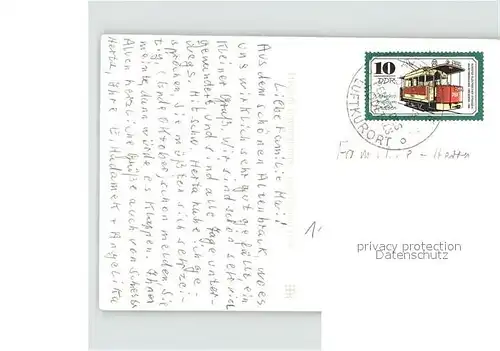 Liebe Familie Mai!
Aus dem schönen Altenbrak, wo es
uns wirklich sehr gut gefällt ein
kleiner Gruß. Wir sind schon sehr viel
gewandert und sind alle Tage unter-
wegs. Mit Schw. Herta habe ich ge-
sprochen, Sie müßten sich sehr zei-
tig, (Ende Oktober) schon melden, Sie
meinte dann würde es klappen. Ihnen
Allen herzliche Grüße auch von Schwester
Herta, Ihre E. Hudamek + Angelika
10
DDR
LUFTKURORT
Familie
1,-
privacy protection
Datenschutz